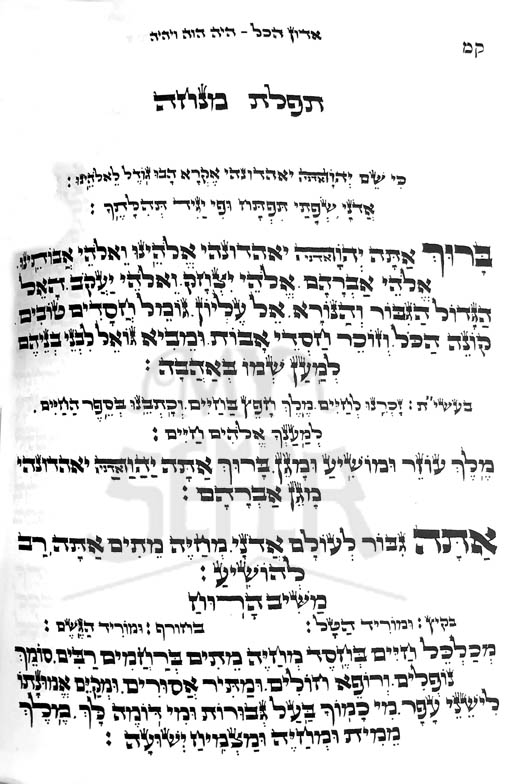 אדון הכל - היה הוה ויהיה
קמ
תפלת מנוחה
כי שֵׁם יאהדונהי אֶקְרָא הָבוּ גֹדֶל לֵאלֹהֵינוּ :
אֲדֹנָי שְׂפָתַי תִּפְתָּח וּפִי יַגִּיד תְּהִלָּתֶךָ :
בָּרוּךְ אַתָּה יאהדונהי אֱלֹהֵינוּ וֵאלֹהֵי אֲבוֹתֵינוּ
אֱלֹהֵי אַבְרָהָם. אֱלֹהֵי יִצְחָק. וֵאלֹהֵי יַעֲקֹב. הָאֵל
הַגָּדוֹל הַגִּבּוֹר וְהַנּוֹרָא. אֵל עֶלְיוֹן. גּוֹמֵל חֲסָדִים טוֹבִים
קוֹנֵה הַכֹּל. וְזוֹכֵר חַסְדֵי אָבוֹת. וּמֵבִיא גוֹאֵל לִבְנֵי בְנֵיהֶם
לְמַעַן שְׁמוֹ בְּאַהֲבָה :
בעשי״ת : זָכְרֵנוּ לְחַיִּים. מֶלֶךְ חָפֵץ בַּחַיִּים. וְכָתְבֵנוּ בְּסֵפֶר הַחַיִּים.
לְמַעֲנָךְ אֱלֹהִים חַיִּים :
מֶלֶךְ עוֹזֵר וּמוֹשִׁיעַ וּמָגֵן. בָּרוּךְ אַתָּה יאהדונהי
מָגֵן אַבְרָהָם :
אַתָּה גִּבּוֹר לְעוֹלָם אֲדֹנָי. מְחַיֵּה מֵתִים אַתָּה. רַב
לְהוֹשִׁיעַ :
מַשִּׁיב הָרוּחַ
בקיץ : וּמוֹרִיד הַטָּל : בחורף : וּמוֹרִיד הַגֶּשֶׁם :
מְכַלְכֵּל חַיִּים בְּחֶסֶד מְחַיֵּה מֵתִים בְּרַחֲמִים רַבִּים. סוֹמֵךְ
נוֹפְלִים. וְרוֹפֵא חוֹלִים. וּמַתִּיר אֲסוּרִים. וּמְקַיֵּם אֱמוּנָתוֹ
לִישֵׁנֵי עָפָר. מִי כָמוֹךָ בַּעַל גְּבוּרוֹת וּמִי דוֹמֶה לָּךְ. מֶלֶךְ
מֵמִית וּמְחַיֶּה וּמַצְמִיחַ יְשׁוּעָה :
MY
SEFER